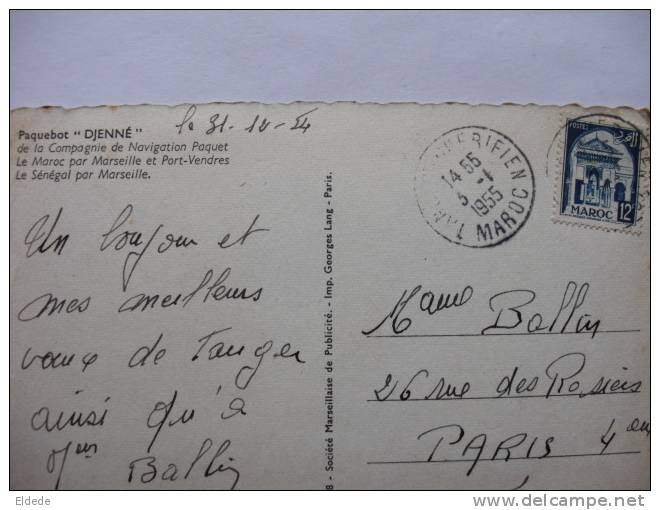 Paquebot "DJENNÉ"
de la Compagnie de Navigation Paquet
Le Maroc par Marseille et Port-Vendres
Le Sénégal par Marseille.
le 31-12-54
Un bonjour et
mes meilleurs
vœux de Tanger
ainsi qu'à
Mr
Ballin
8 - Société Marseillaise de Publicité. - Imp. Georges Lang - Paris.
CHERIFIEN
14 55
3 -1
1955
TANGER MAROC
POSTES
MAROC 12F
Mame Ballin
26 rue des Rosiers
PARIS 4 em
Eldede
delcampe.net